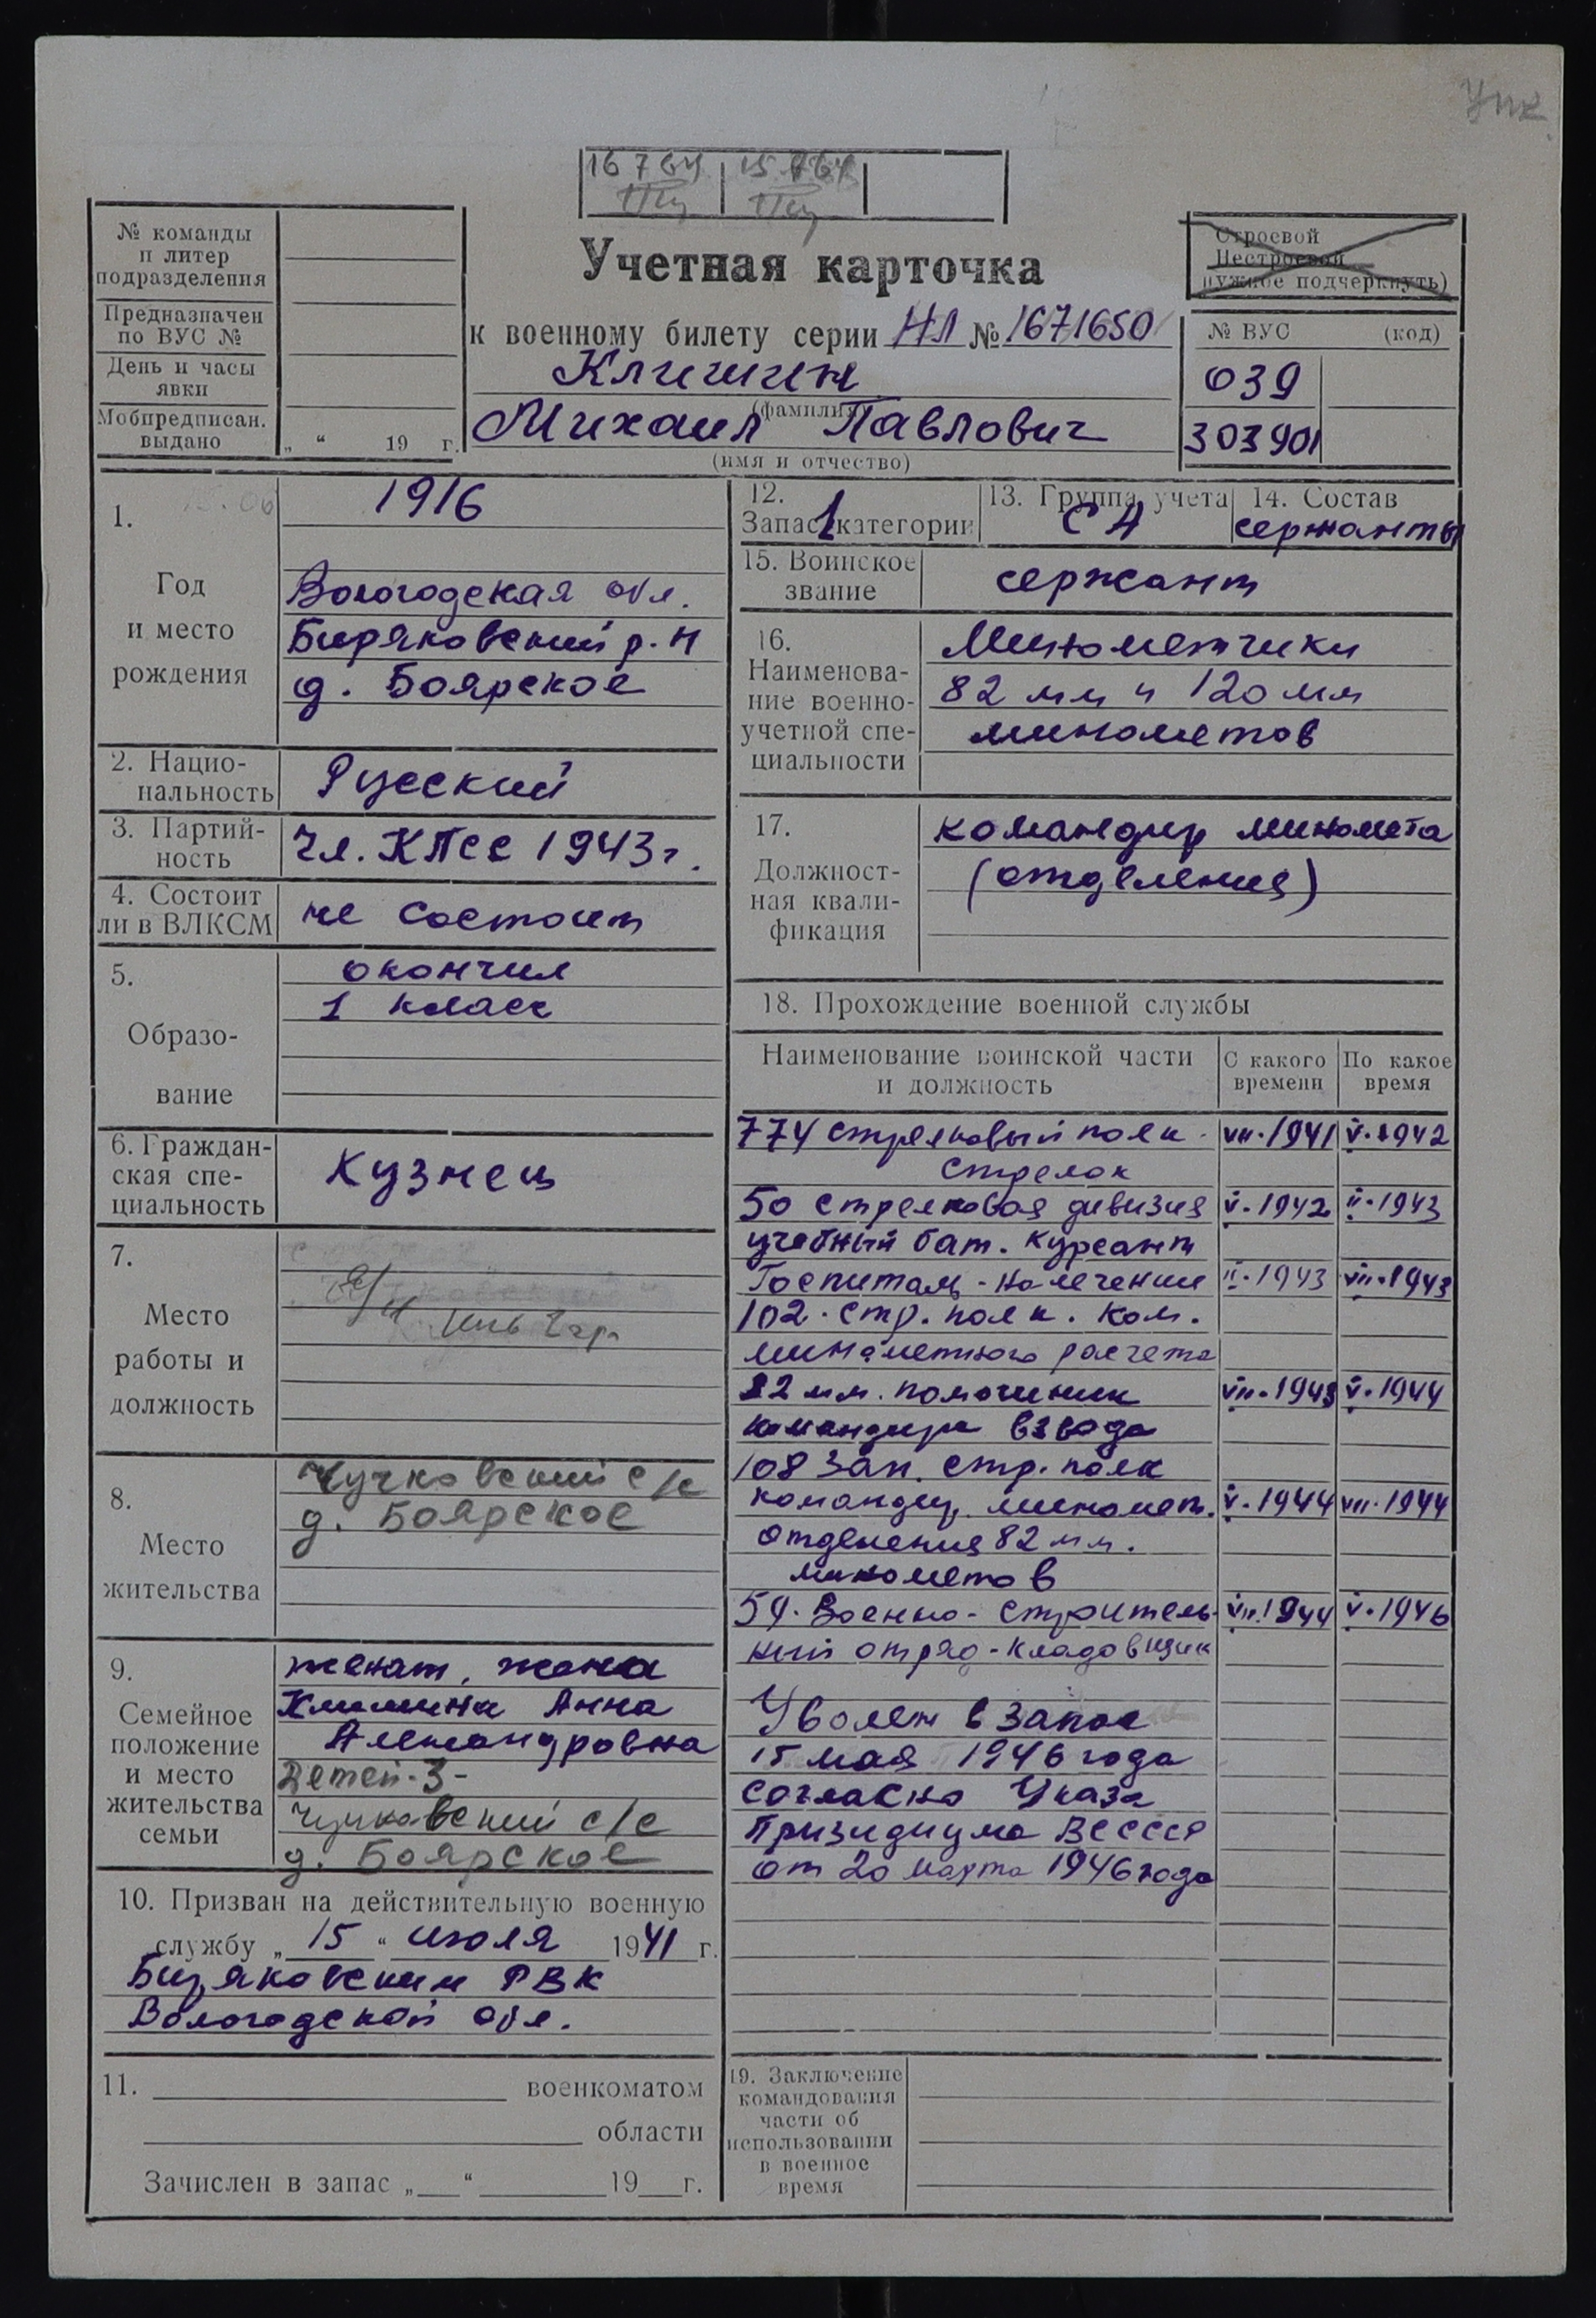 Упк
16 7 64 15 7 64
№ команды
и литер
подразделения
Предназначен
по ВУС №
День и часы
явки
Мобпредписан.
выдано
„ “ 19 г.
Учетная карточка
к военному билету серии НЛ № 1671650
Клишин
(фамилия)
Михаил Павлович
(имя и отчество)
Строевой
Нестроевой
нужное подчеркнуть)
№ ВУС (код)
039
303901
1.
Год
и место
рождения
1916
Вологодская обл.
Биряковский р-н
д. Боярское
2. Нацио-
нальность
Русский
3. Партий-
ность
Чл. КПСС 1943 г.
4. Состоит
ли в ВЛКСМ
не состоит
5.
Образо-
вание
окончил
1 класс
6. Граждан-
ская спе-
циальность
Кузнец
7.
Место
работы и
должность
8.
Место
жительства
Чучковский с/с
д. Боярское
9.
Семейное
положение
и место
жительства
семьи
женат, жена
Клишина Анна
Александровна
Детей-3-
Чучковский с/с
д. Боярское
10. Призван на действительную военную
службу „ 15 “ июля 1941 г.
Биряковским РВК
Вологодской обл.
11. военкоматом
области
Зачислен в запас „ “ 19 г.
12.
Запас 1 категории
13. Группа учета
СА
14. Состав
сержанты
15. Воинское
звание
сержант
16.
Наименова-
ние военно-
учетной спе-
циальности
Минометчики
82 мм и 120 мм
минометов
17.
Должност-
ная квали-
фикация
командир миномета
(отделения)
18. Прохождение военной службы
Наименование воинской части
и должность
С какого
времени
По какое
время
774 стрелковый полк. VII.1941 V.1942
стрелок
50 стрелковая дивизия V.1942 II.1943
учебный бат. курсант
Госпиталь - на лечении II.1943 VII.1943
102. стр. полк. ком.
минометного расчета
82 мм. помощник VII.1943 V.1944
командира взвода
108 Зап. стр. полк
командир миномет. V.1944 VII.1944
отделения 82 мм.
минометов
54. Военно-строитель- VII.1944 V.1946
ный отряд - кладовщик
Уволен в запас
15 мая 1946 года
согласно Указа
Призидиума ВС СССР
от 20 марта 1946 года
19. Заключение
командования
части об
использовании
в военное
время